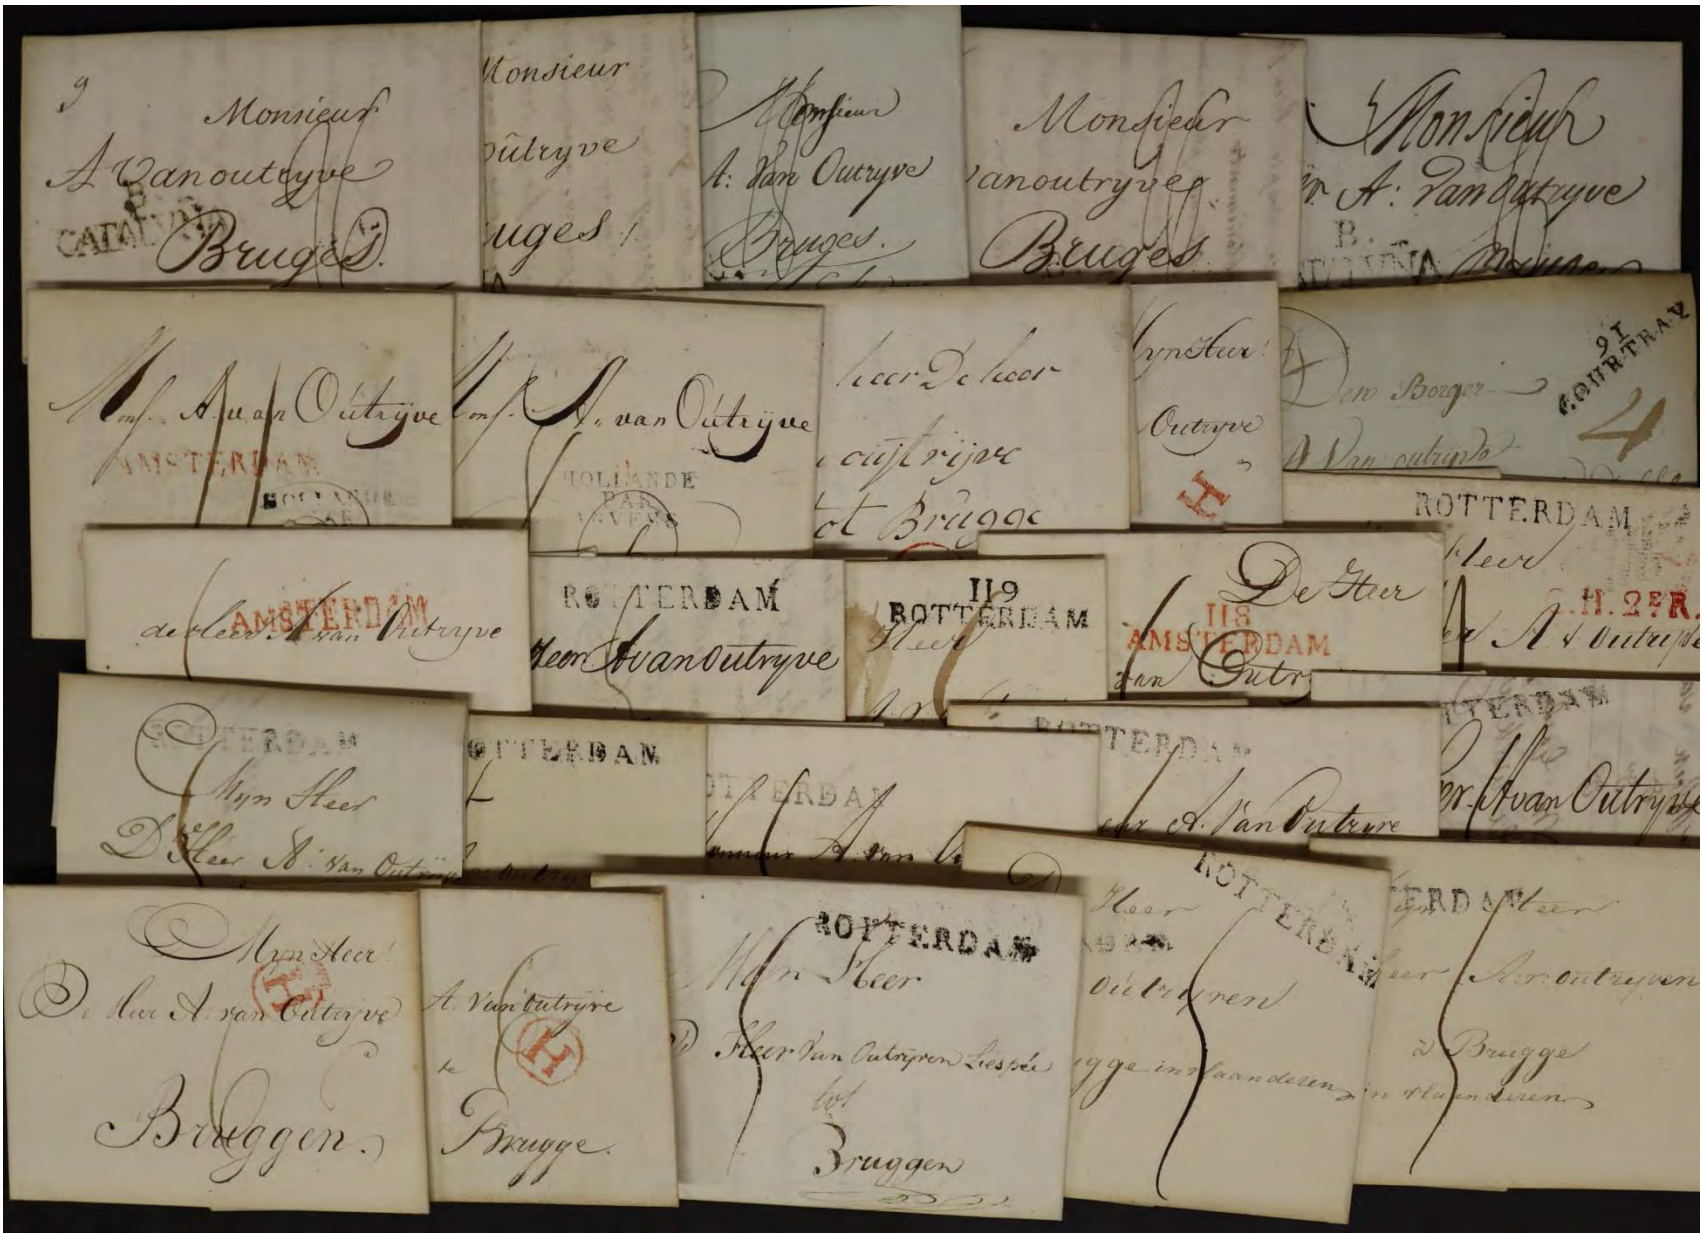 Monsieur
A Vanoutryve
B.
CATALVÑA
Bruges.
Monsieur
outryve
uges
Monsieur
A: Van Outryve
Bruges.
Monsieur
anoutryve
Bruges
Monsieur
A: Van Outryve
B.
Monsr. A. van Outrÿve
AMSTERDAM
HOLLANDE
PAR
Monsr. A. van Outrÿve
HOLLANDE
PAR
ANVERS
heer De heer
outrijve
tot Brugge
Myn Heer!
Outryve
H
Den Borger
A Van outryve
91
COURTRAY
4
ROTTERDAM
Heer
L.H.2ER.
A v outryve
AMSTERDAM
de Heer A van Outryve
ROTTERDAM
Heer A van Outryve
119
ROTTERDAM
Heer
De Heer
118
AMSTERDAM
van Outr
TTERDAM
A van Outryve
ROTTERDAM
Myn Heer
De Heer A: van Outrijve
OTTERDAM
OTTERDAM
A van
ROTTERDAM
A. Van Outryve
Myn Heer!
H
De Heer A: van Outryve
Bruggen.
A. Van Outryve
te
H
Brugge.
ROTTERDAM
Myn Heer
Heer Van Outryven Liespée
tot
Bruggen
ROTTERDAM
Heer
Outryven
ugge in vlaanderen
TERDAM
Myn Heer
Heer A. v. outryven
a Brugge
in vlaanderen